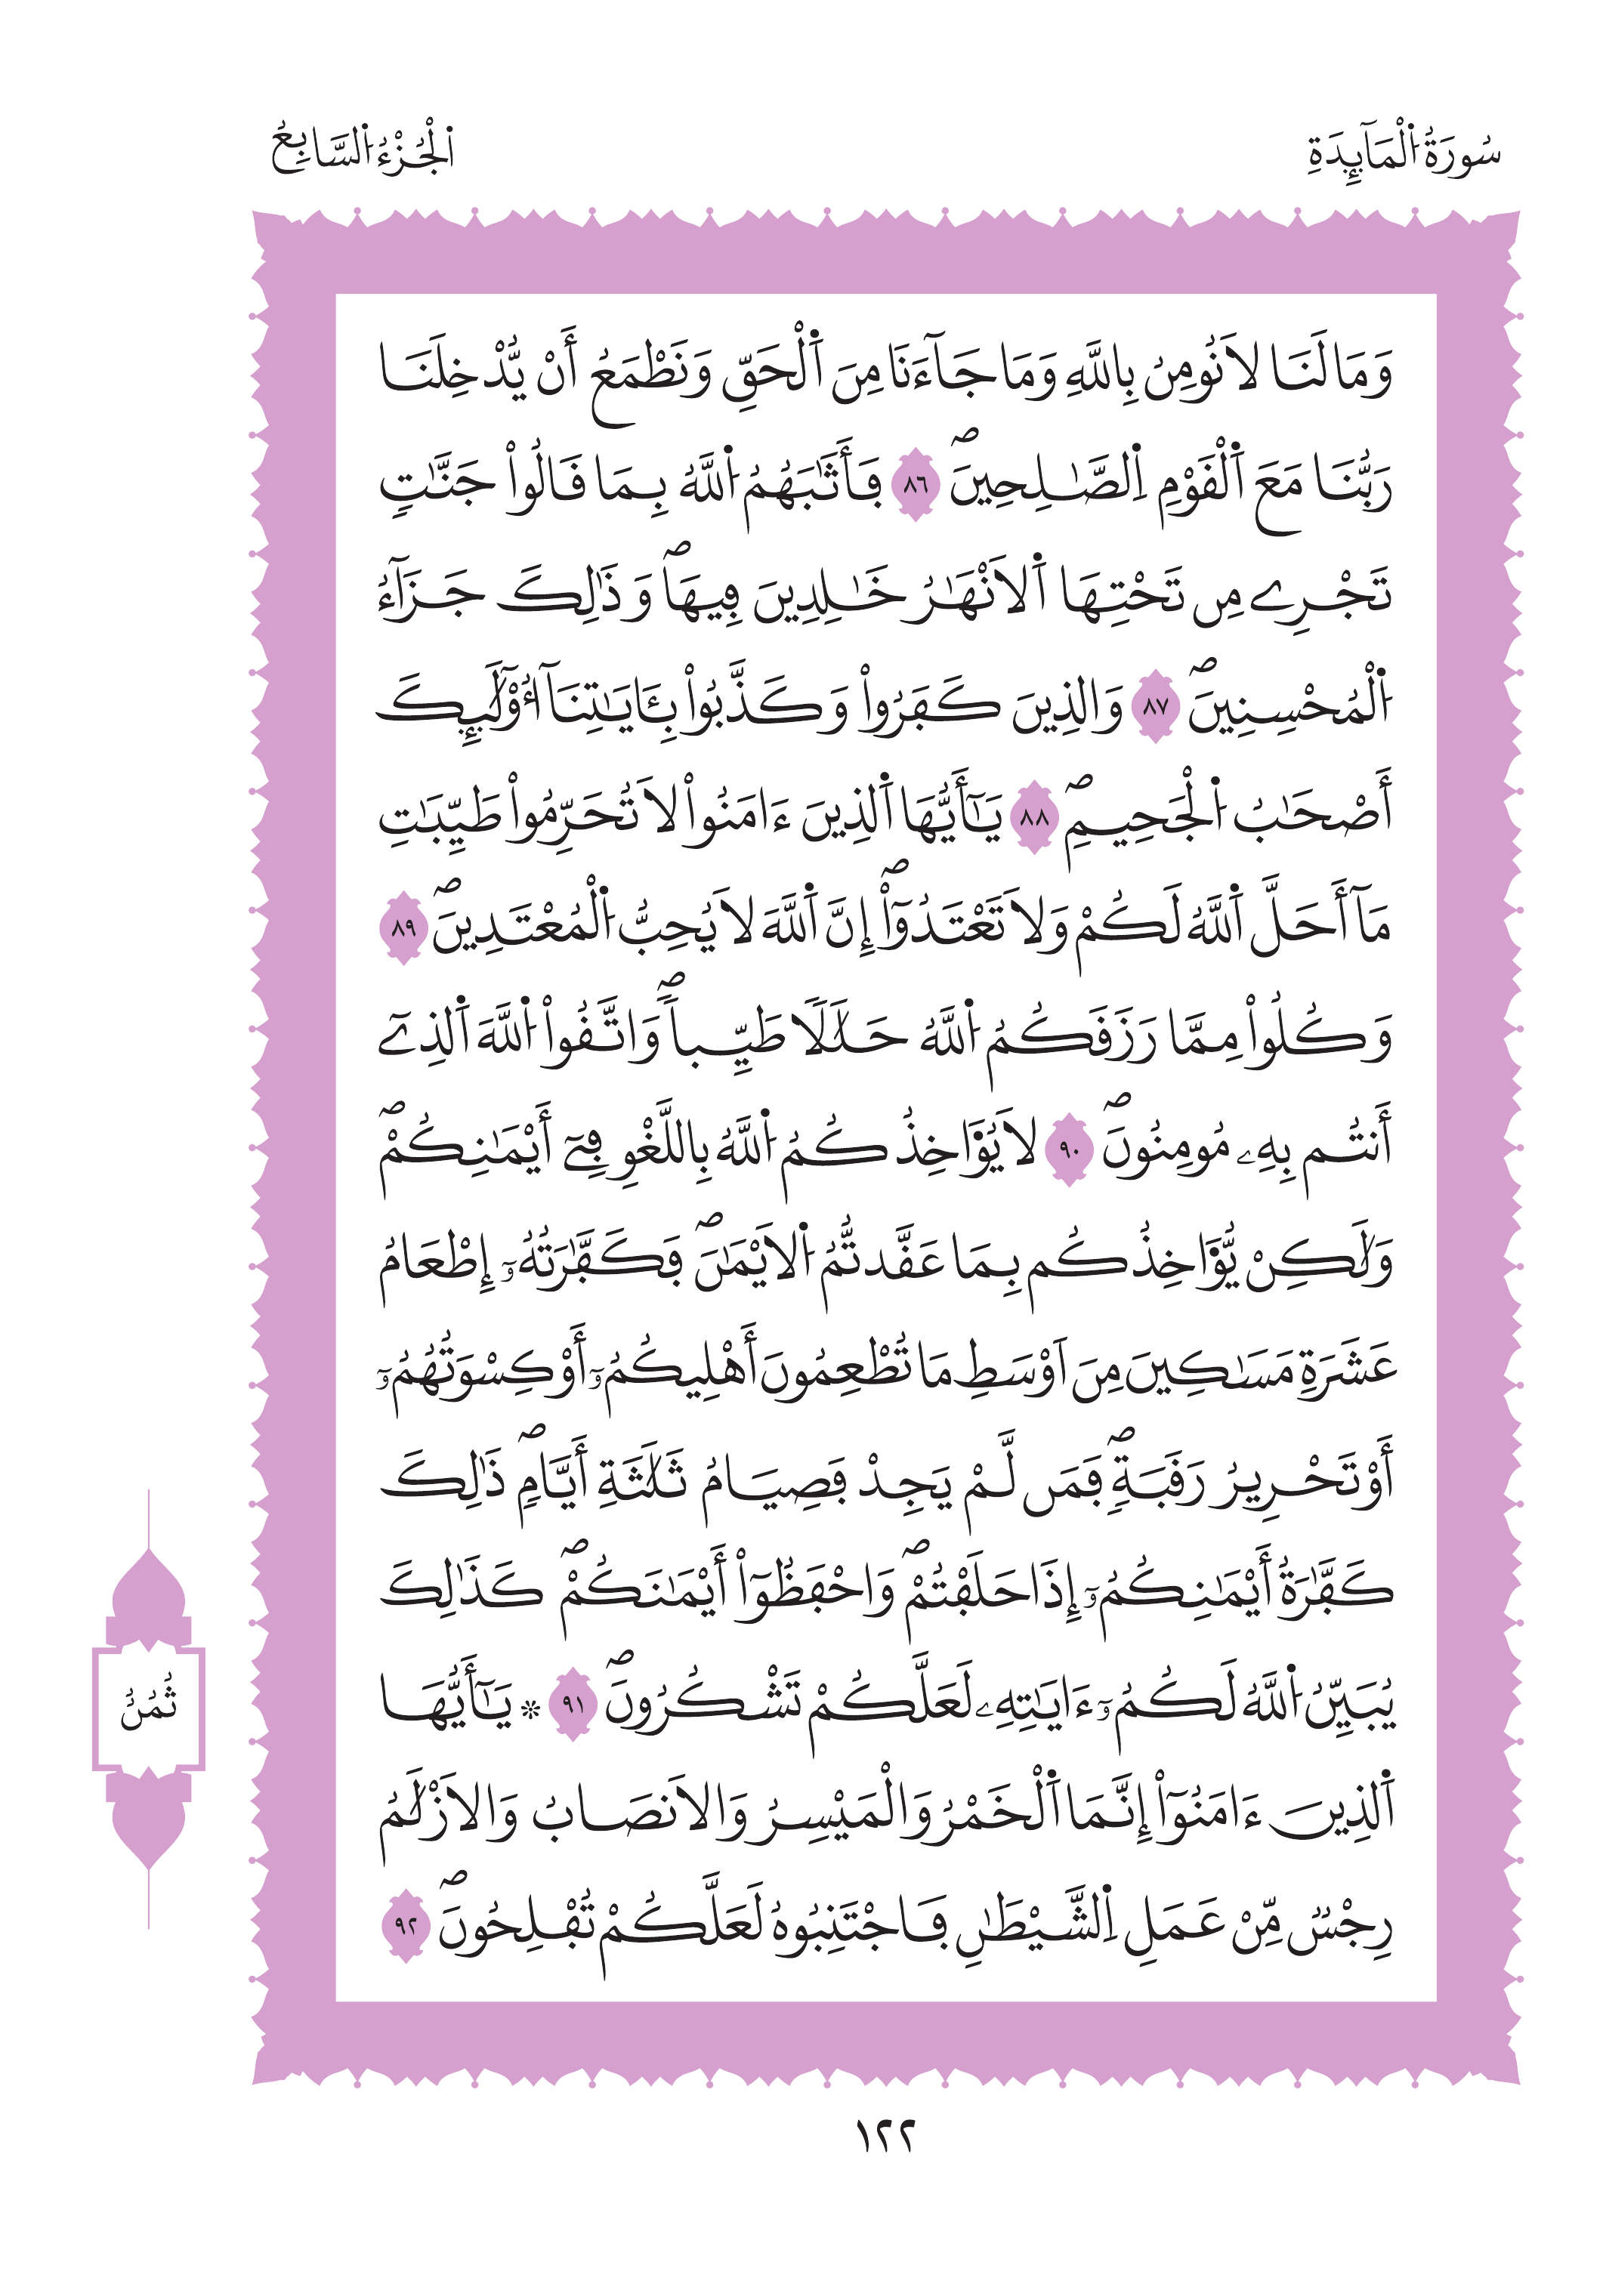 سُورَةُ اُ۬لْمَآئِدَةِ
اَ۬لْجُزْءُ اُ۬لسَّابِعُ
وَمَا لَنَا لَا نُومِنُ بِاللَّهِ وَمَا جَآءَنَا مِنَ اَ۬لْحَقِّ وَنَطْمَعُ أَنْ يُّدْخِلَنَا
رَبُّنَا مَعَ اَ۬لْقَوْمِ اِ۬لصَّٰلِحِينَۖ ٨٦ فَأَثَٰبَهُمُ اُ۬للَّهُ بِمَا قَالُواْ جَنَّٰتٍ
تَجْرِے مِن تَحْتِهَا اَ۬لَانْهَٰرُ خَٰلِدِينَ فِيهَاۖ وَذَٰلِكَ جَزَآءُ
اُ۬لْمُحْسِنِينَۖ ٨٧ وَالذِينَ كَفَرُواْ وَكَذَّبُواْ بِـَٔايَٰتِنَآ أُوْلَٰٓئِكَ
أَصْحَٰبُ اُ۬لْجَحِيمِۖ ٨٨ يَٰٓأَيُّهَا اَ۬لذِينَ ءَامَنُواْ لَا تُحَرِّمُواْ طَيِّبَٰتِ
مَآ أَحَلَّ اَ۬للَّهُ لَكُمْ وَلَا تَعْتَدُوٓاْۖ إِنَّ اَ۬للَّهَ لَا يُحِبُّ اُ۬لْمُعْتَدِينَۖ ٨٩
وَكُلُواْ مِمَّا رَزَقَكُمُ اُ۬للَّهُ حَلَٰلًا طَيِّباًۖ وَاتَّقُواْ اُ۬للَّهَ اَ۬لذِےٓ
أَنتُم بِهِۦ مُومِنُونَۖ ٩٠ لَا يُؤَاخِذُكُمُ اُ۬للَّهُ بِاللَّغْوِ فِےٓ أَيْمَٰنِكُمْۖ
وَلَٰكِنْ يُّؤَاخِذُكُم بِمَا عَقَّدتُّمُ اُ۬لَايْمَٰنَۖ فَكَفَّٰرَتُهُۥٓ إِطْعَامُ
عَشَرَةِ مَسَٰكِينَ مِنَ اَوْسَطِ مَا تُطْعِمُونَ أَهْلِيكُمُۥٓ أَوْ كِسْوَتُهُمُۥٓ
أَوْ تَحْرِيرُ رَقَبَةٍۖ فَمَن لَّمْ يَجِدْ فَصِيَامُ ثَلَٰثَةِ أَيَّامٍۖ ذَٰلِكَ
كَفَّٰرَةُ أَيْمَٰنِكُمُۥٓ إِذَا حَلَفْتُمْۖ وَاحْفَظُوٓاْ أَيْمَٰنَكُمْۖ كَذَٰلِكَ
يُبَيِّنُ اُ۬للَّهُ لَكُمُۥٓ ءَايَٰتِهِۦ لَعَلَّكُمْ تَشْكُرُونَۖ ٩١ ۞ يَٰٓأَيُّهَا
اَ۬لذِينَ ءَامَنُوٓاْ إِنَّمَا اَ۬لْخَمْرُ وَالْمَيْسِرُ وَالَانصَابُ وَالَازْلَٰمُ
رِجْسٌ مِّنْ عَمَلِ اِ۬لشَّيْطَٰنِ فَاجْتَنِبُوهُ لَعَلَّكُمْ تُفْلِحُونَۖ ٩٢
ثُمُنُ
١٢٢